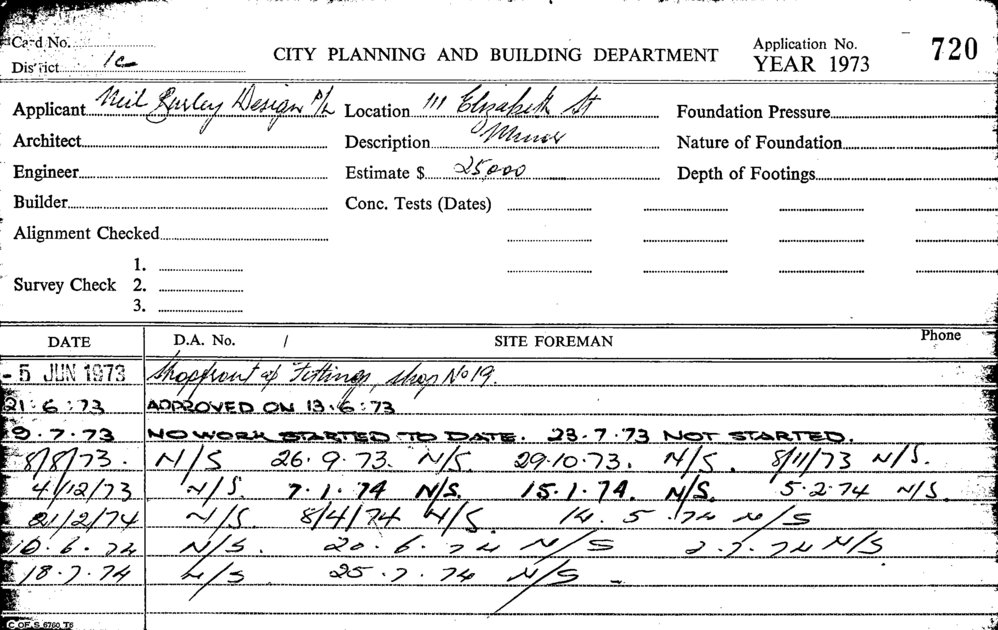 Card No.
District 1c
CITY PLANNING AND BUILDING DEPARTMENT
Application No. 720
YEAR 1973
Applicant Neil Design P/L Location 111 Elizabeth St Foundation Pressure
Architect Description Minor Nature of Foundation
Engineer Estimate $ 25,000 Depth of Footings
Builder Conc. Tests (Dates)
Alignment Checked
1.
Survey Check 2.
3.
DATE D.A. No. / SITE FOREMAN Phone
- 5 JUN 1973 Shopfront & Fittings, shop No 19.
21.6.73 APPROVED ON 13.6.73
9.7.73 NO WORK STARTED TO DATE. 23.7.73 NOT STARTED.
8/8/73. N/S 26.9.73. N/S. 29.10.73. N/S. 8/11/73 N/S.
4/12/73 N/S. 7.1.74 N/S. 15.1.74. N/S. 5.2.74 N/S.
21/2/74 N/S. 8/4/74 N/S. 14.5.74 N/S
10.6.74 N/S. 20.6.74 N/S 2.7.74 N/S
18.7.74 N/S 25.7.74 N/S -
C OF S 6760 T6